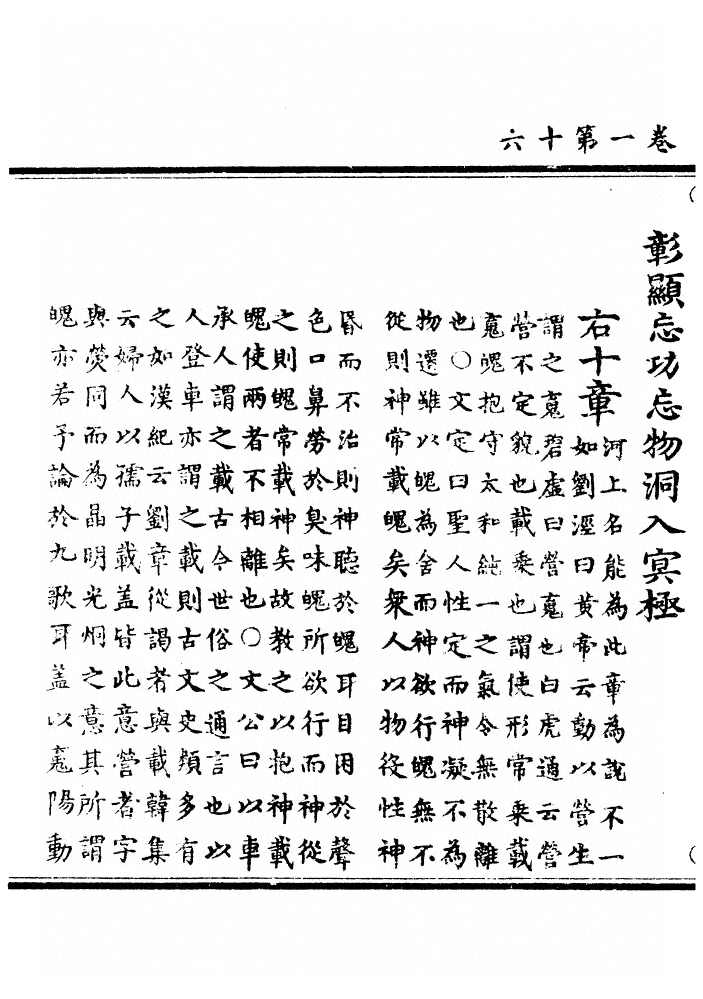 卷一第十六
彰顯忘功忘物洞入冥極
右十章
河上名能為此章為說不一
如劉涇曰黃帝云動以營生
謂之䰟碧虛曰營䰟也白虎通云營
營不定貌也載乗也謂使形常乗載
䰟魄抱守太和純一之氣令無散離
也○文定曰聖人性定而神凝不為
物遷雖以魄為舍而神欲行魄無不
從則神常載魄矣衆人以物役性神
昬而不治則神聽於魄耳目困於聲
色口鼻勞於臭味魄所欲行而神從
之則魄常載神矣故教之以抱神載
魄使兩者不相離也○文公曰以車
承人謂之載古今世俗之通言也以
人登車亦謂之載則古文史類多有
之如漢紀云劉章從謁者與載韓集
云婦人以孺子載盖皆此意營者字
與熒同而為晶明光烱之意其所謂
魄亦若予論於九歌耳盖以䰟陽動